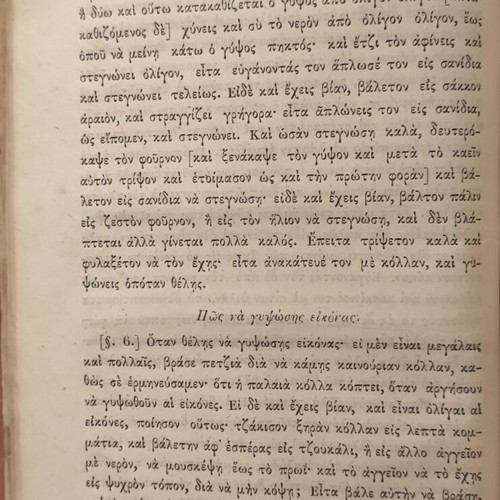 ἢ δύω καὶ οὕτω κατακαθίζεται ὁ γύψος ἀπὸ ὀλίγον
καθιζόμενος δὲ] χύνεις καὶ σὺ τὸ νερὸν ἀπὸ ὀλίγον ὀλίγον, ἕως
ὁποῦ νὰ μείνῃ κάτω ὁ γύψος πηκτός· καὶ ἔτζι τὸν ἀφίνεις καὶ
στεγνώνει ὀλίγον, εἶτα εὐγάνοντάς τον ἅπλωσέ τον εἰς σανίδια
καὶ στεγνώνει τελείως. Εἰδὲ καὶ ἔχεις βίαν, βάλετον εἰς σάκκον
ἀραιὸν, καὶ στραγγίζει γρήγορα· εἶτα ἁπλώνεις τον εἰς σανίδια,
ὡς εἴπομεν, καὶ στεγνώνει. Καὶ ὡσὰν στεγνώσῃ καλὰ, δευτερό-
καψε τὸν φοῦρνον [καὶ ξενάκαψε τὸν γύψον καὶ μετὰ τὸ καεῖν
αὐτὸν τρίψον καὶ ἑτοίμασον ὡς καὶ τὴν πρώτην φορὰν] καὶ βά-
λετον εἰς σανίδια νὰ στεγνώσῃ· εἰδὲ καὶ ἔχεις βίαν, βάλτον πάλιν
εἰς ζεστὸν φοῦρνον, ἢ εἰς τὸν ἥλιον νὰ στεγνώσῃ, καὶ δὲν βλά-
πτεται ἀλλὰ γίνεται πολλὰ καλός. Ἔπειτα τρίψετον καλὰ καὶ
φυλαξέτον νὰ τὸν ἔχῃς· εἶτα ἀνακάτευέ τον μὲ κόλλαν, καὶ γυ-
ψώνεις ὁπόταν θέλῃς.
Πῶς νὰ γυψώσῃς εἰκόνας.
[§. 6.] Ὅταν θέλῃς νὰ γυψώσῃς εἰκόνας· εἰ μὲν εἶναι μεγάλαις
καὶ πολλαῖς, βράσε πετζιὰ διὰ νὰ κάμῃς καινούριαν κόλλαν, κα-
θὼς σὲ ἑρμηνεύσαμεν· ὅτι ἡ παλαιὰ κόλλα κόπτει, ὅταν ἀργήσουν
νὰ γυψωθοῦν αἱ εἰκόνες. Εἰ δὲ καὶ ἔχεις βίαν, καὶ εἶναι ὀλίγαι αἱ
εἰκόνες, ποίησον οὕτως· τζάκισον ξηρὰν κόλλαν εἰς λεπτὰ κομ-
μάτια, καὶ βάλετην ἀφ᾽ ἑσπέρας εἰς τζουκάλι, ἢ εἰς ἄλλο ἀγγεῖον
μὲ νερὸν, νὰ μουσκέψῃ ἕως τὸ πρωΐ· καὶ τὸ ἀγγεῖον νὰ τὸ ἔχῃς
εἰς ψυχρὸν τόπον, διὰ νὰ μὴν κόψῃ; Εἶτα βάλε αὐτὴν νὰ βράσῃ·